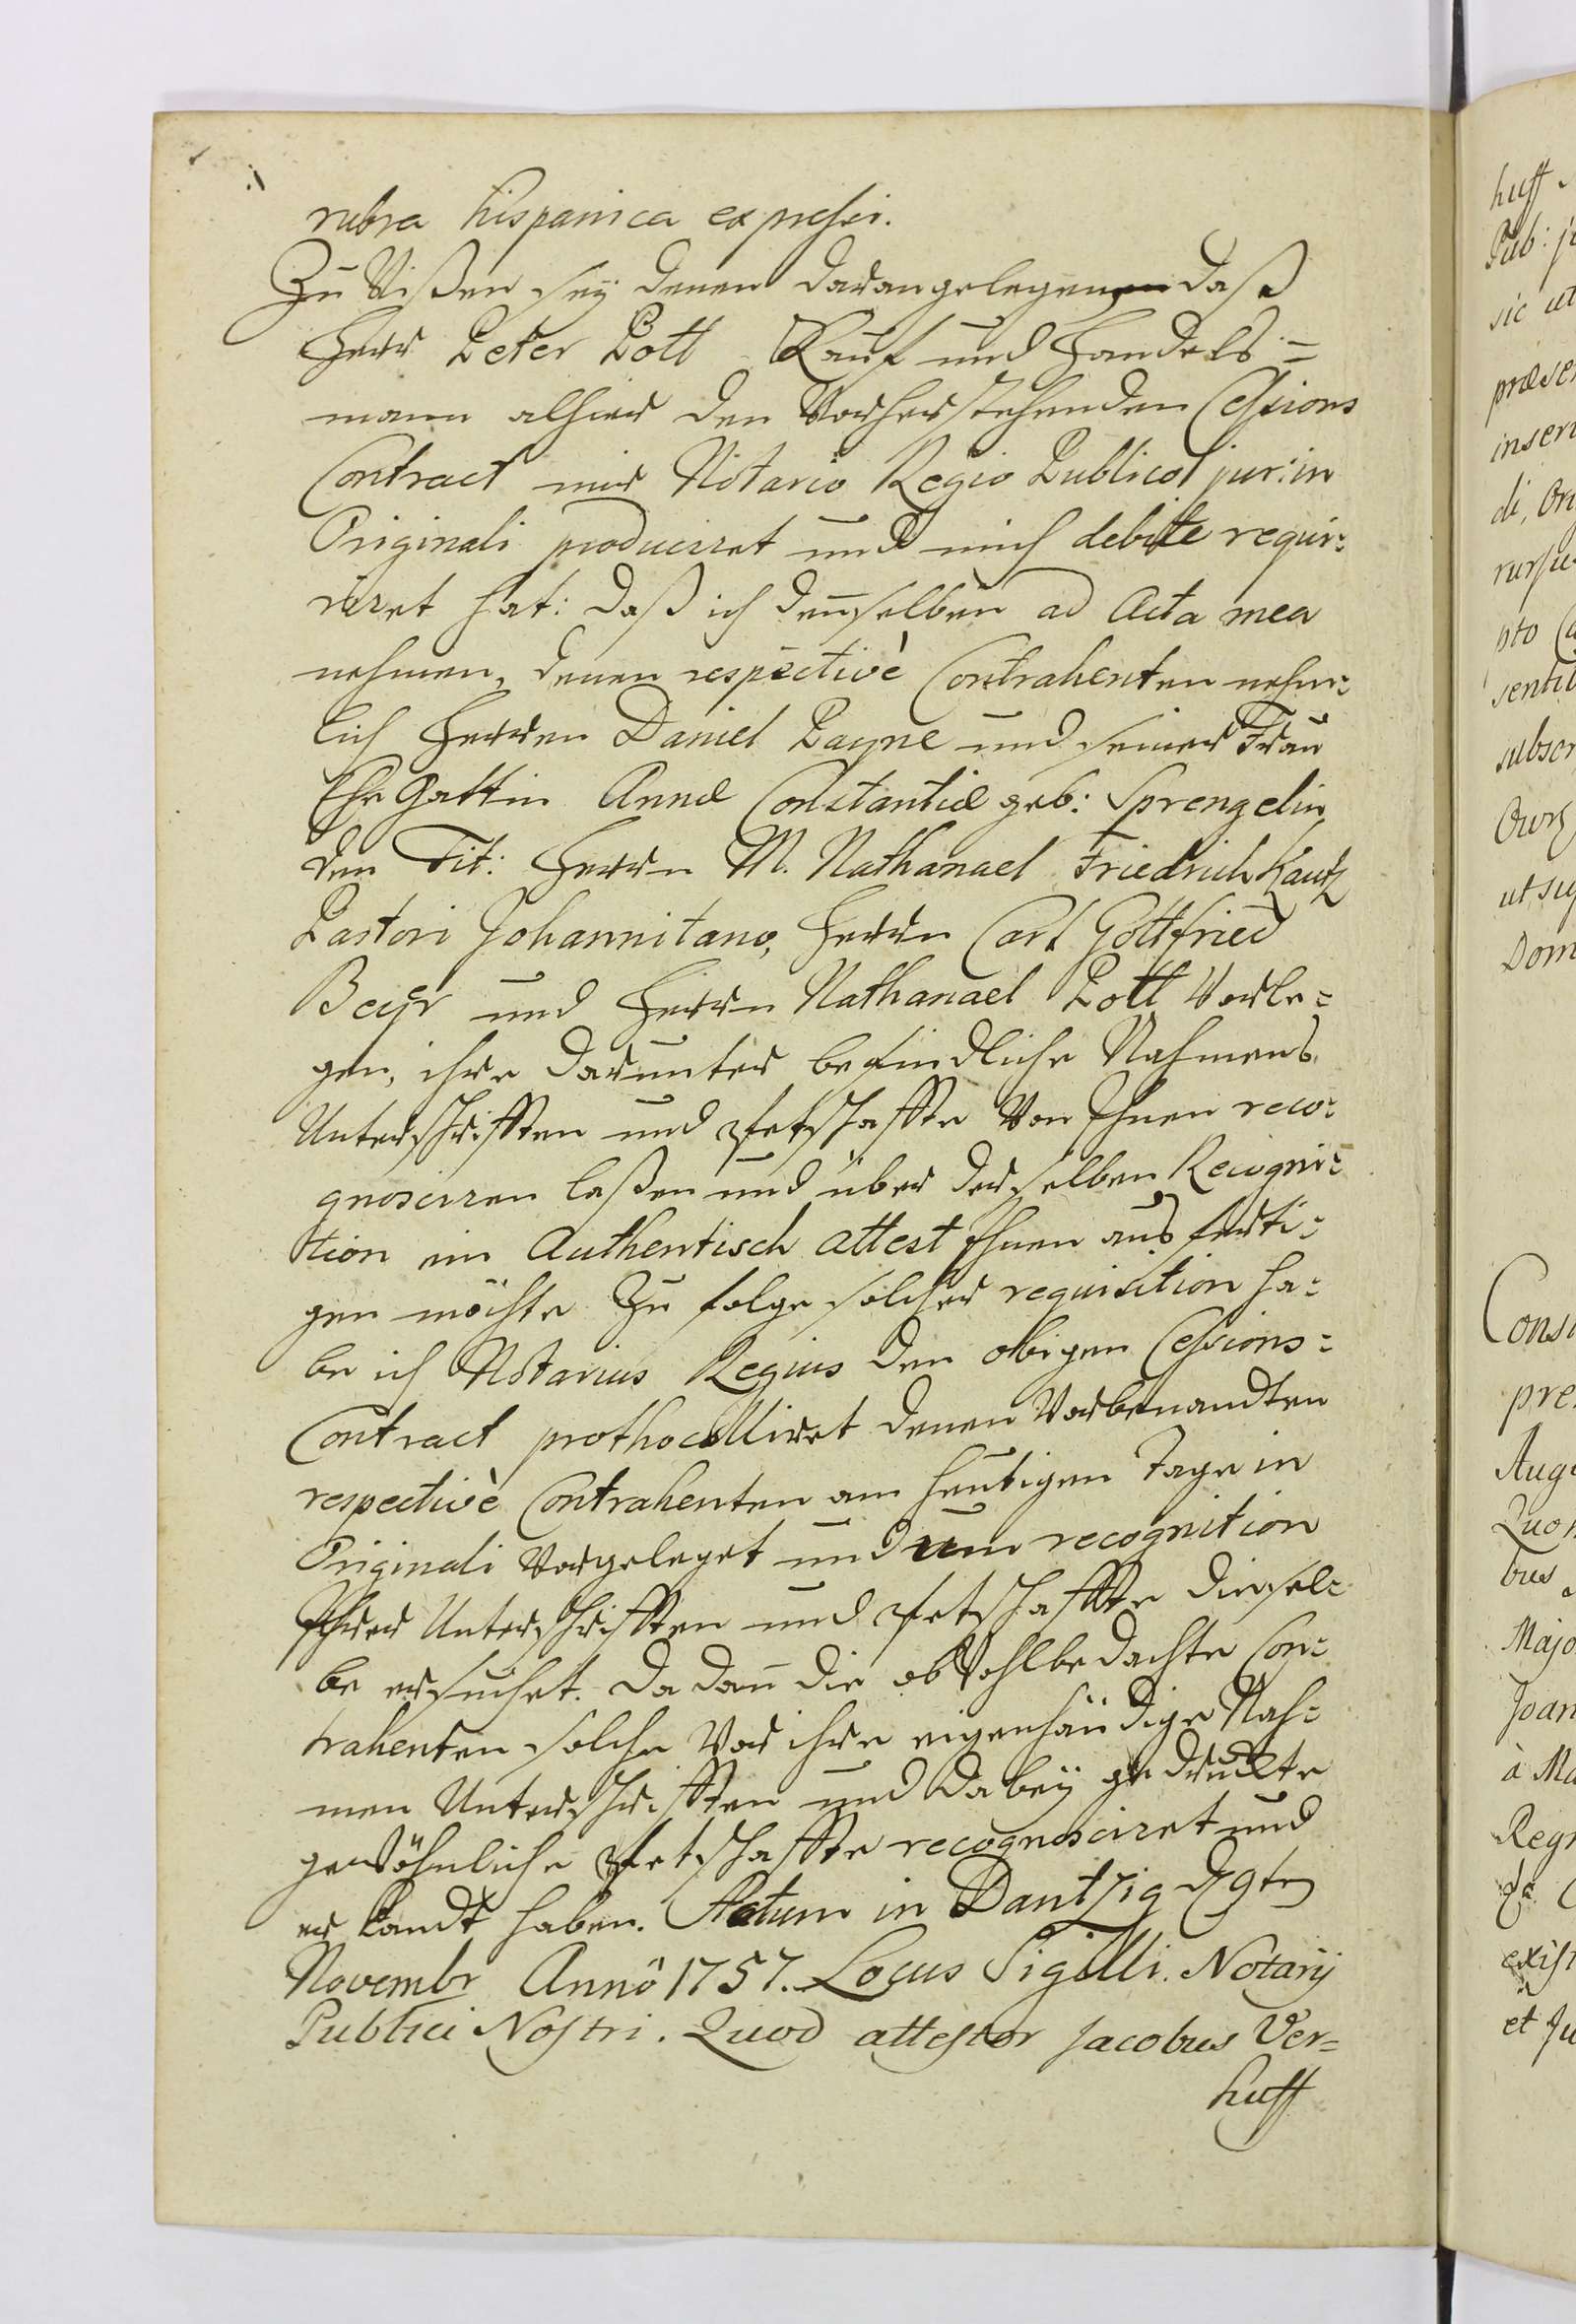 rubra hispanica expressi.
Zu Wißen sey denen darangelegenen daß
Herr Peter Pott Kauf und Handels=
mann alhier den Vorherstehenden Cessions
Contract mir Notario Regio Publico jur: in
Originali produciret und mich debite requi=
riret hat: daß ich denselben ad Acta mea
nehmen, denen respectivè Contrahenten nehm=
lich Herren Daniel Payne und seiner Frau
Ehe Gattin Annæ Constantiæ geb: Sprengelin,
den Tit: Herrn M. Nathanael Friedrich Kautz
Pastori Johannitano, Herrn Carl Gottfried
Beyer und Herrn Nathanael Pott Vorle=
gen, ihre darunter befindliche Nahmens
Unterschrifften und Petschaffte Von Ihnen reco=
gnosciren laßen und über derselben Recogni=
tion ein Authentisch attest Ihnen ausferti=
gen möchte Zu folge solcher requisition ha=
be ich Notarius Regius den obigen Cessions=
Contract prothocolliret denen Vorbenandten
respectivè Contrahenten am heutigen Tage in
Originali Vorgeleget und um recognition
Ihrer Unterschrifften und Petschaffte diesel=
be ersuchet. Da dann die obWohlbedachte Con=
trahenten solche Vor ihre eigenhändige Nah=
men Unterschrifften und dabey gedruckte
gewöhnliche Petschaffte recognosciret und
erkandt haben. Actum in Dantzig
Novembr Annô 1757. Locus Sigilli. Notarij
Publici Nostri. Quod attestor Jacobus Ver=
huff
huff
Pub:
sic
insen
di,
pto
Dom
pre
bus
Majo
Joan
à Ma
Regn
et